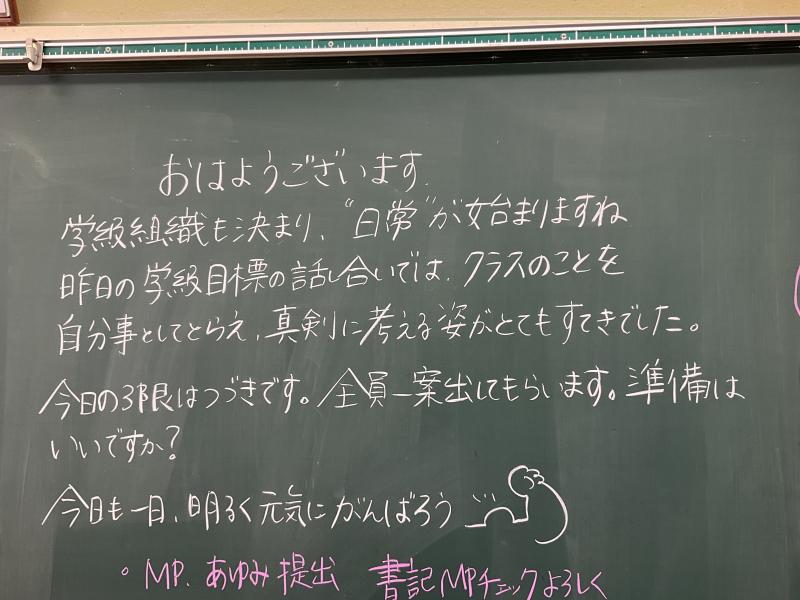 おはようございます.
学級組織も決まり、"日常"が始まりますね
昨日の学級目標の話し合いでは、クラスのことを
自分事としてとらえ、真剣に考える姿がとてもすてきでした。
今日の3限はつづきです。全員一案出してもらいます。準備は
いいですか?
今日も一日、明るく元気にがんばろう
。MP. あゆみ提出 書記MPチェックよろしく